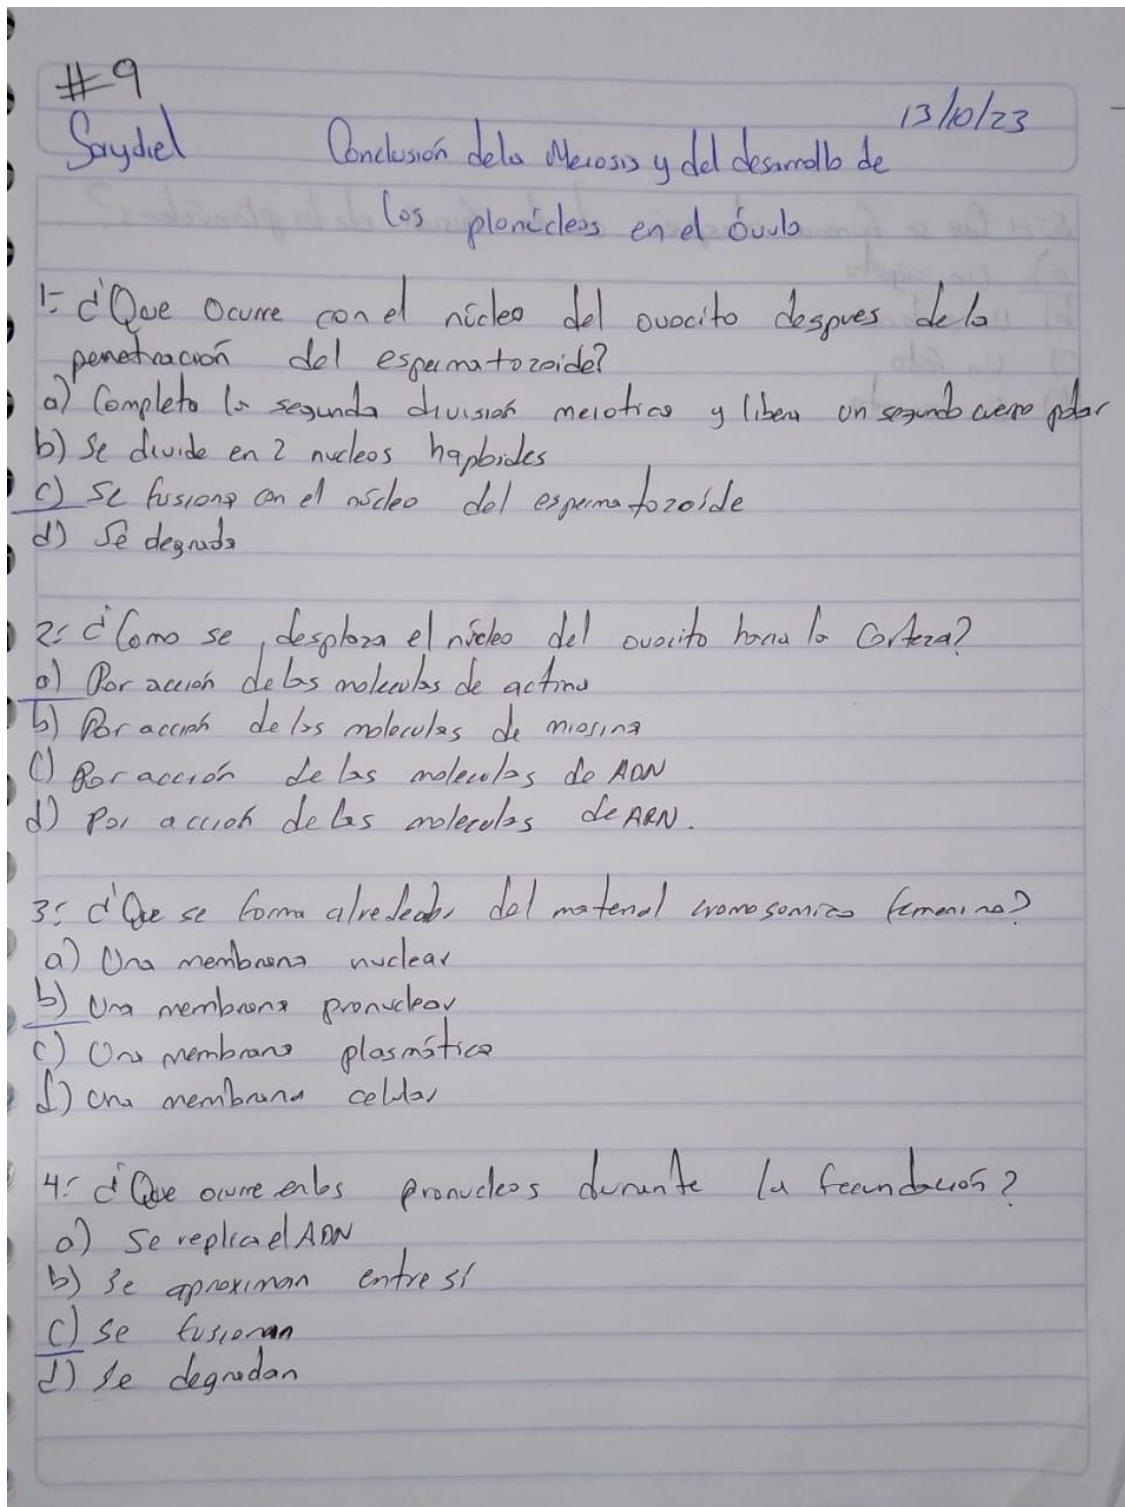 #9
13/10/23
Saydiel Conclusión de la Meiosis y del desarrollo de
los plonúcleos en el óvulo
1- ¿Que ocurre con el núcleo del ovocito despues de la
penetración del espermatozoide?
a) Completa la segunda división meiotica y libera un segundo cuerpo polar
b) Se divide en 2 nucleos haploides
c) Se fusiona con el núcleo del espermatozoide
d) Se degrada
2- ¿Como se desplaza el núcleo del ovocito hacia la Corteza?
a) Por acción de las moleculas de actina
b) Por acción de las moleculas de miosina
c) Por acción de las moleculas de ADN
d) Por acción de las moleculas de ARN.
3- ¿Que se forma alrededor del material cromosomico femenino?
a) Una membrana nuclear
b) Una membrana pronuclear
c) Una membrana plasmática
d) una membrana celular
4- ¿Que ocurre en los pronucleos durante la fecundación?
a) Se replica el ADN
b) Se aproximan entre sí
c) Se fusionan
d) Se degradan